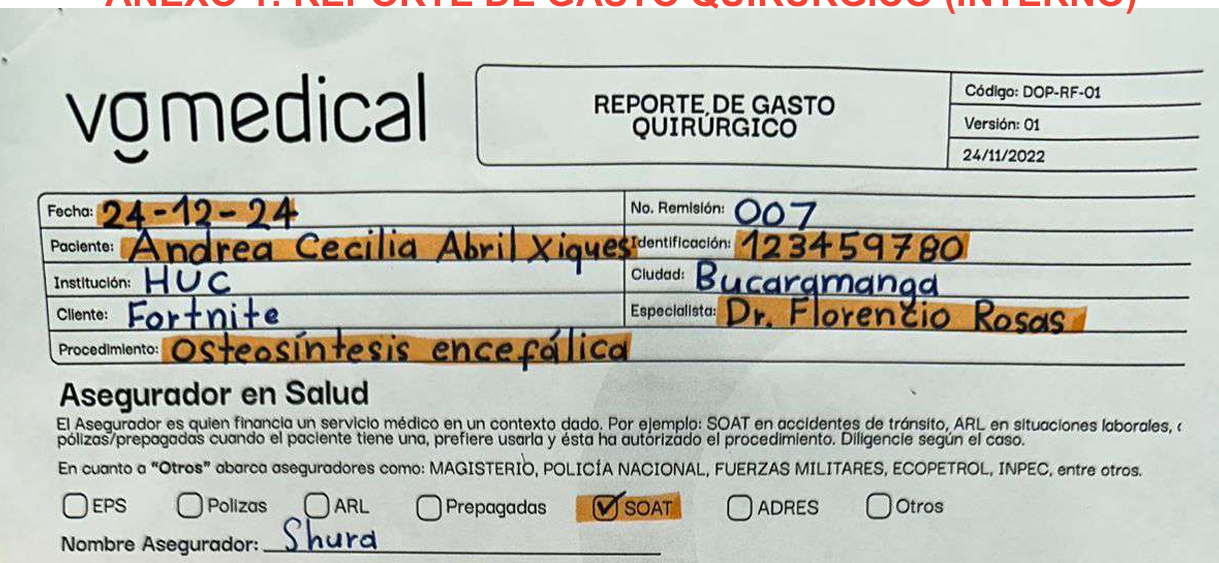 ANEXO 1. REPORTE DE GASTO QUIRÚRGICO (INTERNO)
vgmedical
REPORTE DE GASTO
QUIRÚRGICO
Código: DOP-RF-01
Versión: 01
24/11/2022
Fecha: 24-12-24 No. Remisión: 007
Paciente: Andrea Cecilia Abril Xiques Identificación: 123459780
Institución: HUC Ciudad: Bucaramanga
Cliente: Fortnite Especialista: Dr. Florencio Rosas
Procedimiento: Osteosíntesis encefálica
Asegurador en Salud
El Asegurador es quien financia un servicio médico en un contexto dado. Por ejemplo: SOAT en accidentes de tránsito, ARL en situaciones laborales,
pólizas/prepagadas cuando el paciente tiene una, prefiere usarla y ésta ha autorizado el procedimiento. Diligencie según el caso.
En cuanto a "Otros" abarca aseguradores como: MAGISTERIO, POLICÍA NACIONAL, FUERZAS MILITARES, ECOPETROL, INPEC, entre otros.
EPS Polizas ARL Prepagadas SOAT ADRES Otros
Nombre Asegurador: Shura